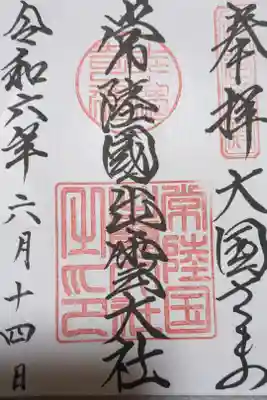 奉拝 大国さま
常陸國出雲大社
令和六年 六月十四日
常陸国